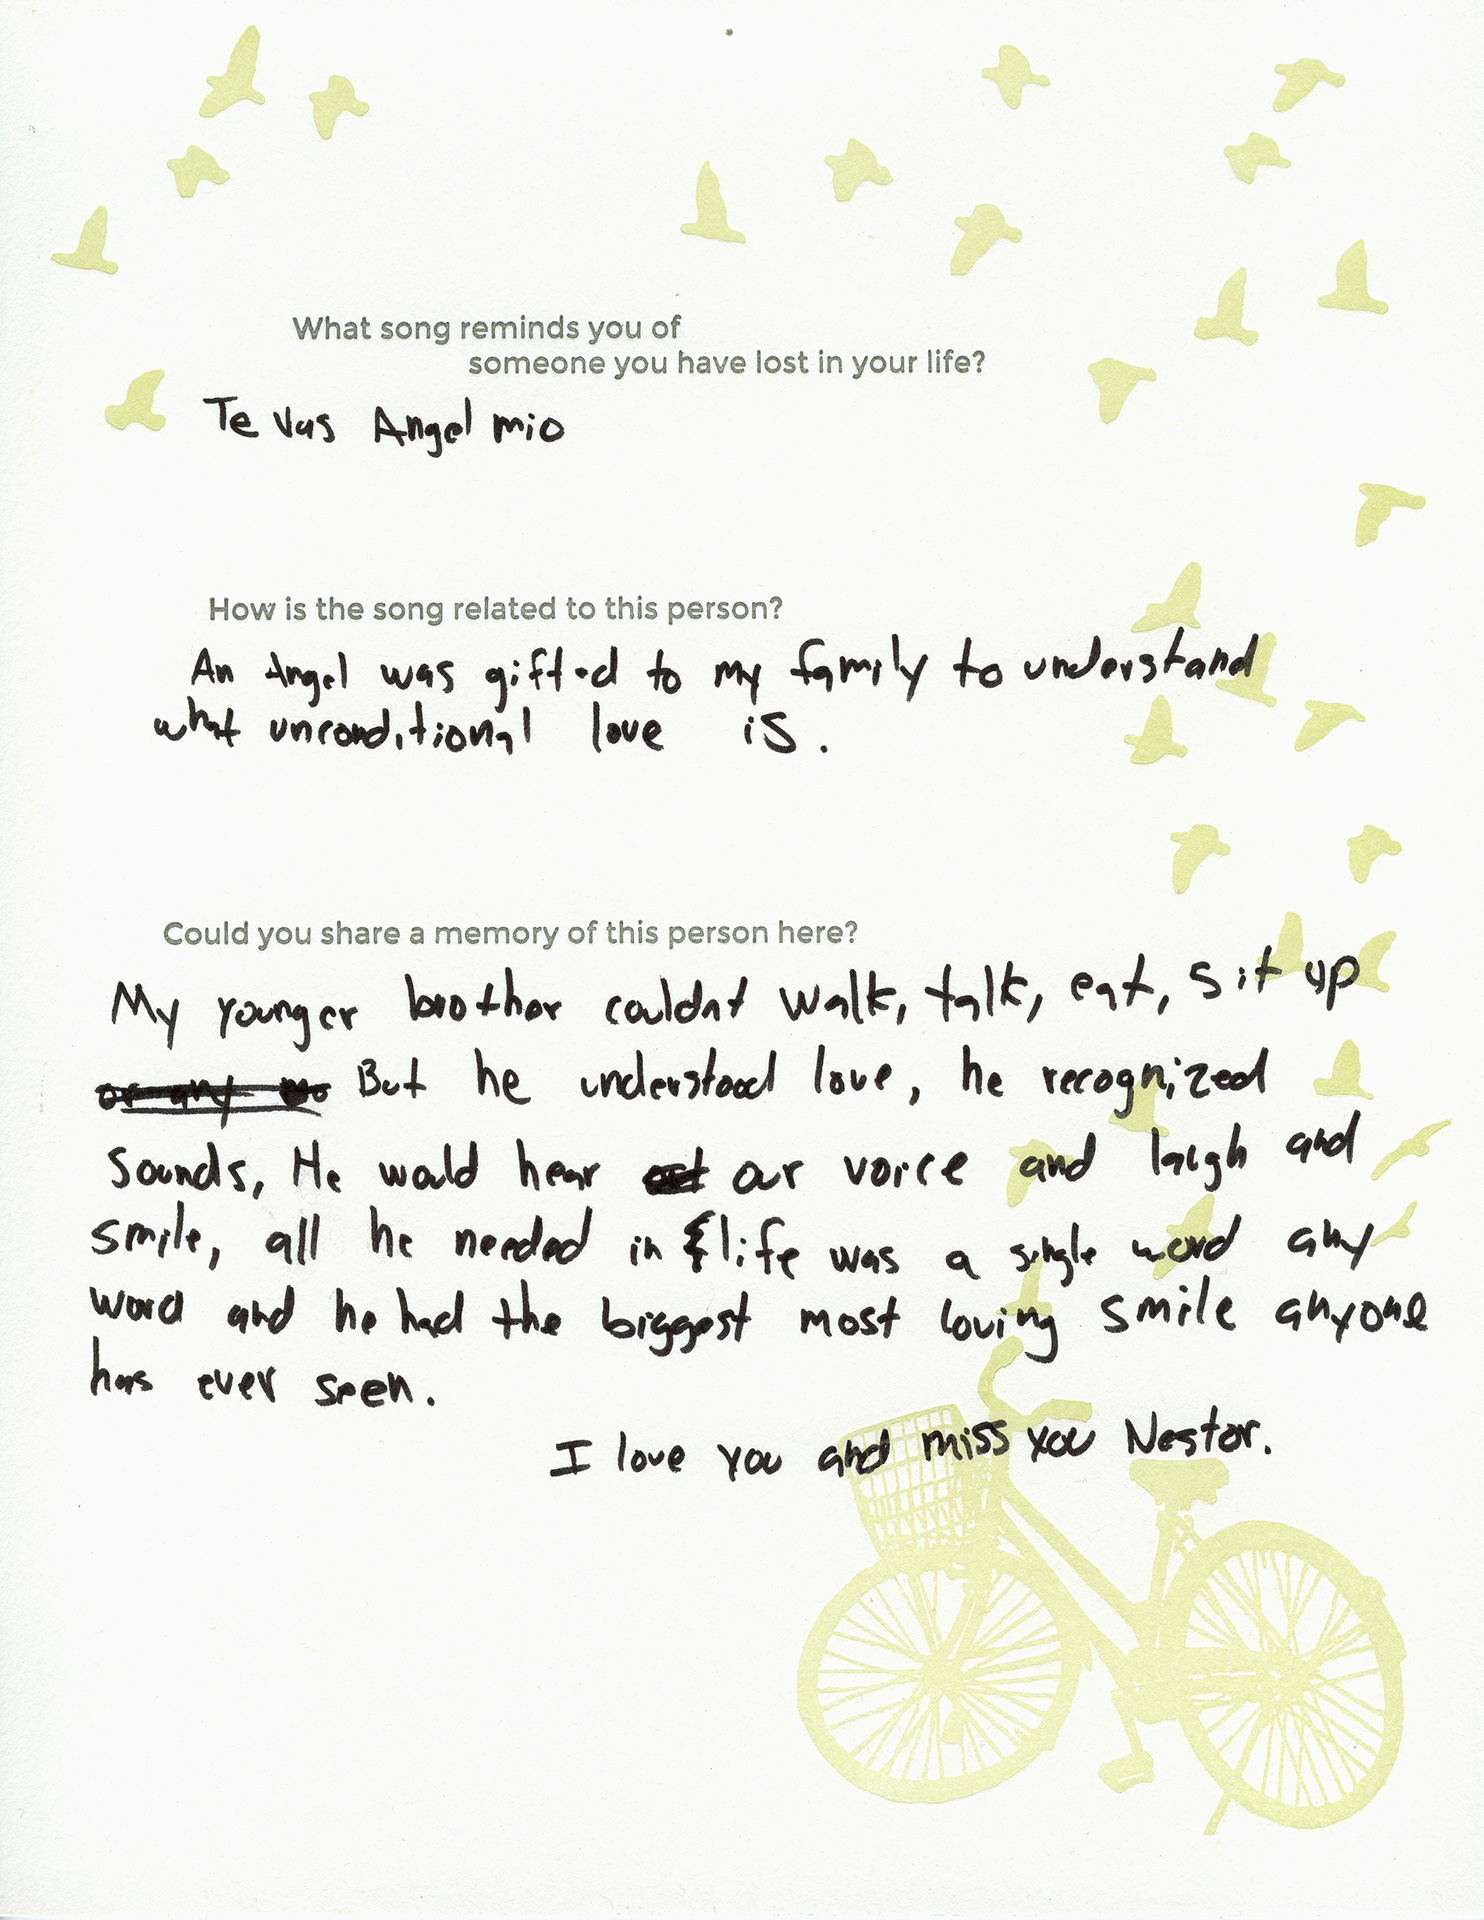 What song reminds you of
someone you have lost in your life?
Te Vas Angel mio
How is the song related to this person?
An Angel was gifted to my family to understand
what unconditional love is.
Could you share a memory of this person here?
My younger brother couldnt walk, talk, eat, sit up
or any But he understood love, he recognized
sounds, He would hear our voice and laugh and
smile, all he needed in life was a single word any
word and he had the biggest most loving smile anyone
has ever seen.
I love you and miss you Nestor.